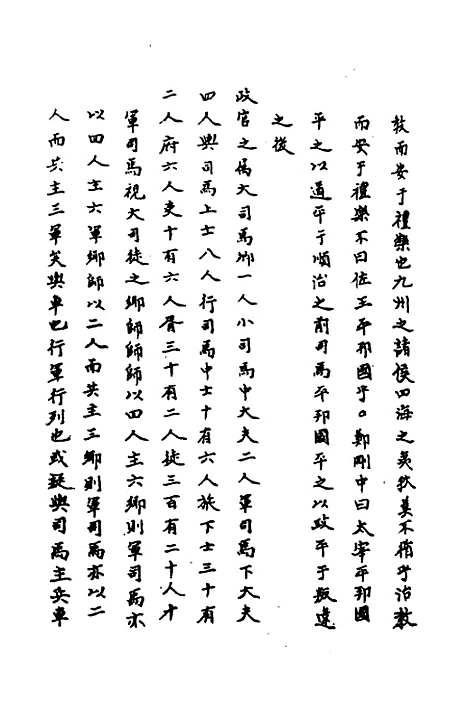 敎而安于禮樂也九州之諸侯四海之夷狄莫不循乎治敎
而安于禮樂不曰佐王平邦國乎。鄭剛中曰太宰平邦國
平之以道平于順治之前司馬平邦國平之以政平于叛違
之後
政官之屬大司馬卿一人小司馬中大夫二人軍司馬下大夫
四人輿司馬上士八人行司馬中士十有六人旅下士三十有
二人府六人吏十有六人胥三十有二人徒三百有二十人才
軍司馬視大司徒之鄉師師師以四人主六鄉則軍司馬亦
以四人主六軍鄉師以二人而共主三鄉則軍司馬亦以二
人而共主三軍矣輿車也行軍行列也或疑輿司馬主兵車